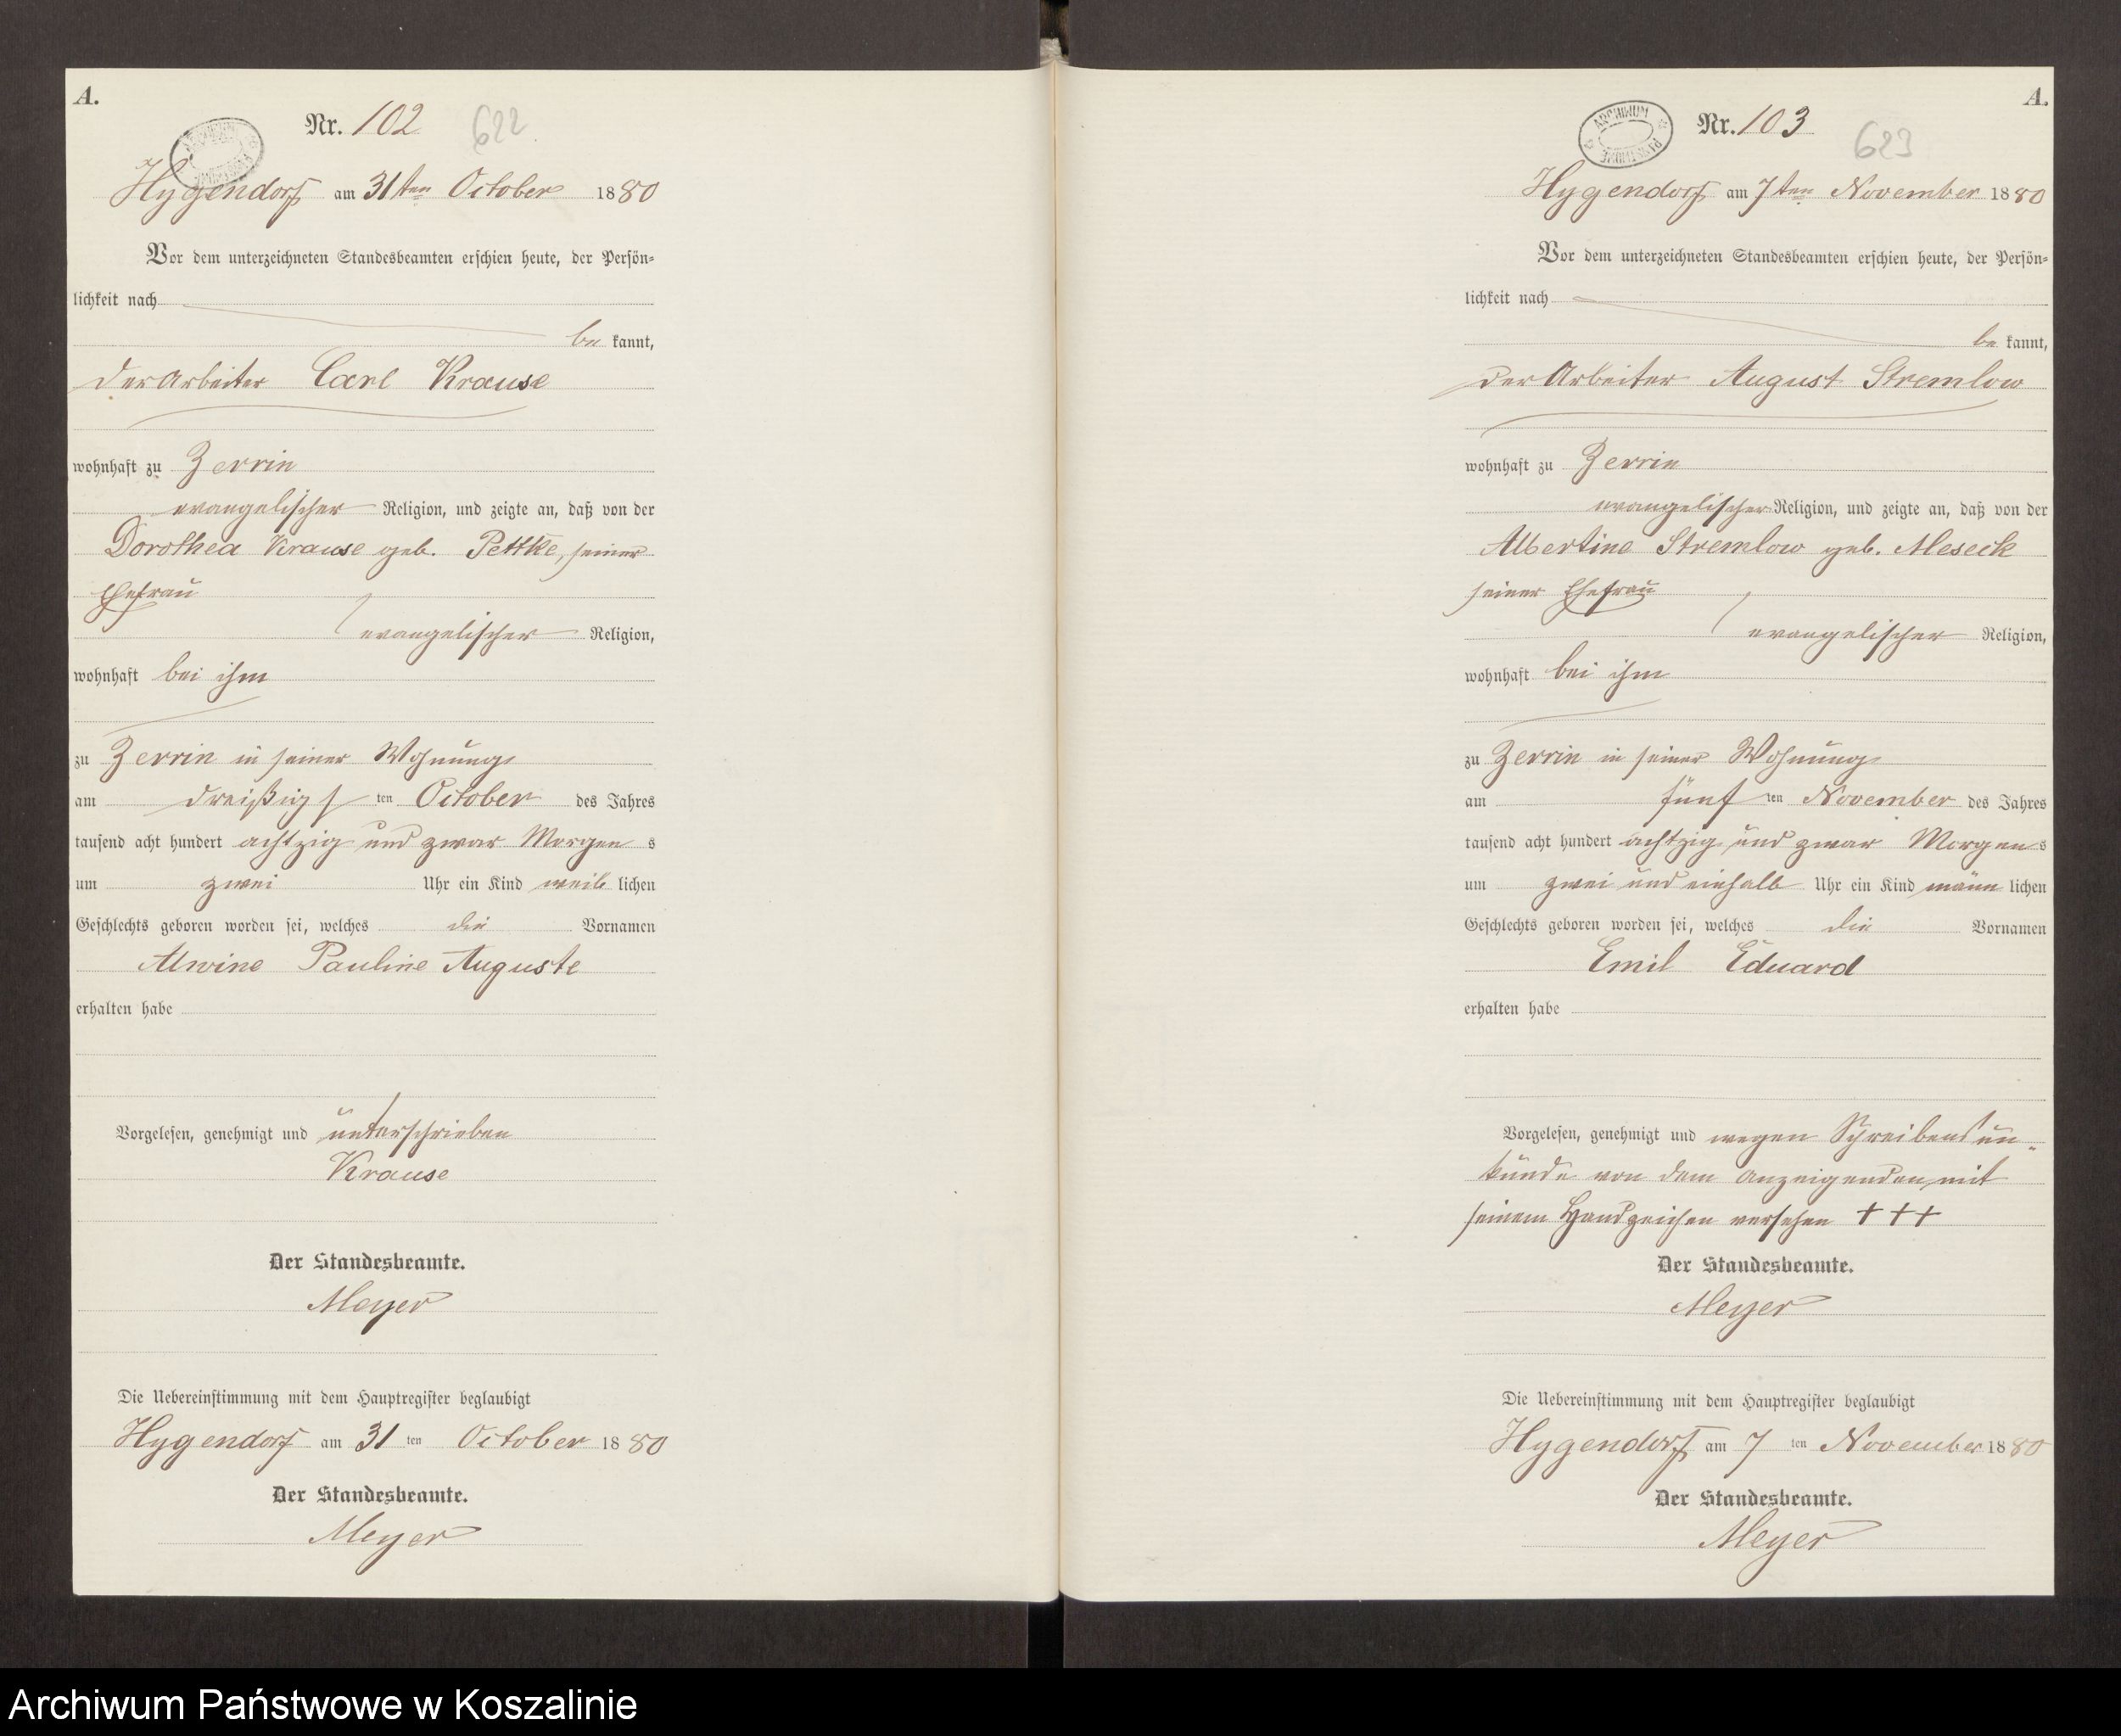 A.
Nr. 102
622
Hygendorf am 31ten October 1880
Vor dem unterzeichneten Standesbeamten erschien heute, der Persön-
lichkeit nach
be kannt,
der Arbeiter Carl Krause
wohnhaft zu Zerrin
evangelischer Religion, und zeigte an, daß von der
Dorothea Krause geb. Pettke, seiner
Ehefrau
evangelischer Religion,
wohnhaft bei ihm
zu Zerrin in seiner Wohnung
am dreißigs ten October des Jahres
tausend acht hundert achtzig und zwar Morgen s
um zwei Uhr ein Kind weib lichen
Geschlechts geboren worden sei, welches die Vornamen
Alwine Pauline Auguste
erhalten habe
Vorgelesen, genehmigt und unterschrieben
Krause
Der Standesbeamte.
Meyer
Die Uebereinstimmung mit dem Hauptregister beglaubigt
Hygendorf am 31 ten October 1880
Der Standesbeamte.
Meyer
A.
ARCHIWUM PAŃSTWOWE
Nr. 103
623
Hygendorf am 7ten November 1880
Vor dem unterzeichneten Standesbeamten erschien heute, der Persön-
lichkeit nach
be kannt,
der Arbeiter August Stremlow
wohnhaft zu Zerrin
evangelischer Religion, und zeigte an, daß von der
Albertine Stremlow geb. Meseck
seiner Ehefrau
evangelischer Religion,
wohnhaft bei ihm
zu Zerrin in seiner Wohnung
am fünf ten November des Jahres
tausend acht hundert achtzig und zwar Morgen s
um zwei und einhalb Uhr ein Kind männ lichen
Geschlechts geboren worden sei, welches die Vornamen
Emil Eduard
erhalten habe
Vorgelesen, genehmigt und wegen Schreibensun-
kunde von dem Anzeigenden mit
seinem Handzeichen versehen + + +
Der Standesbeamte.
Meyer
Die Uebereinstimmung mit dem Hauptregister beglaubigt
Hygendorf am 7 ten November 1880
Der Standesbeamte.
Meyer
Archiwum Państwowe w Koszalinie